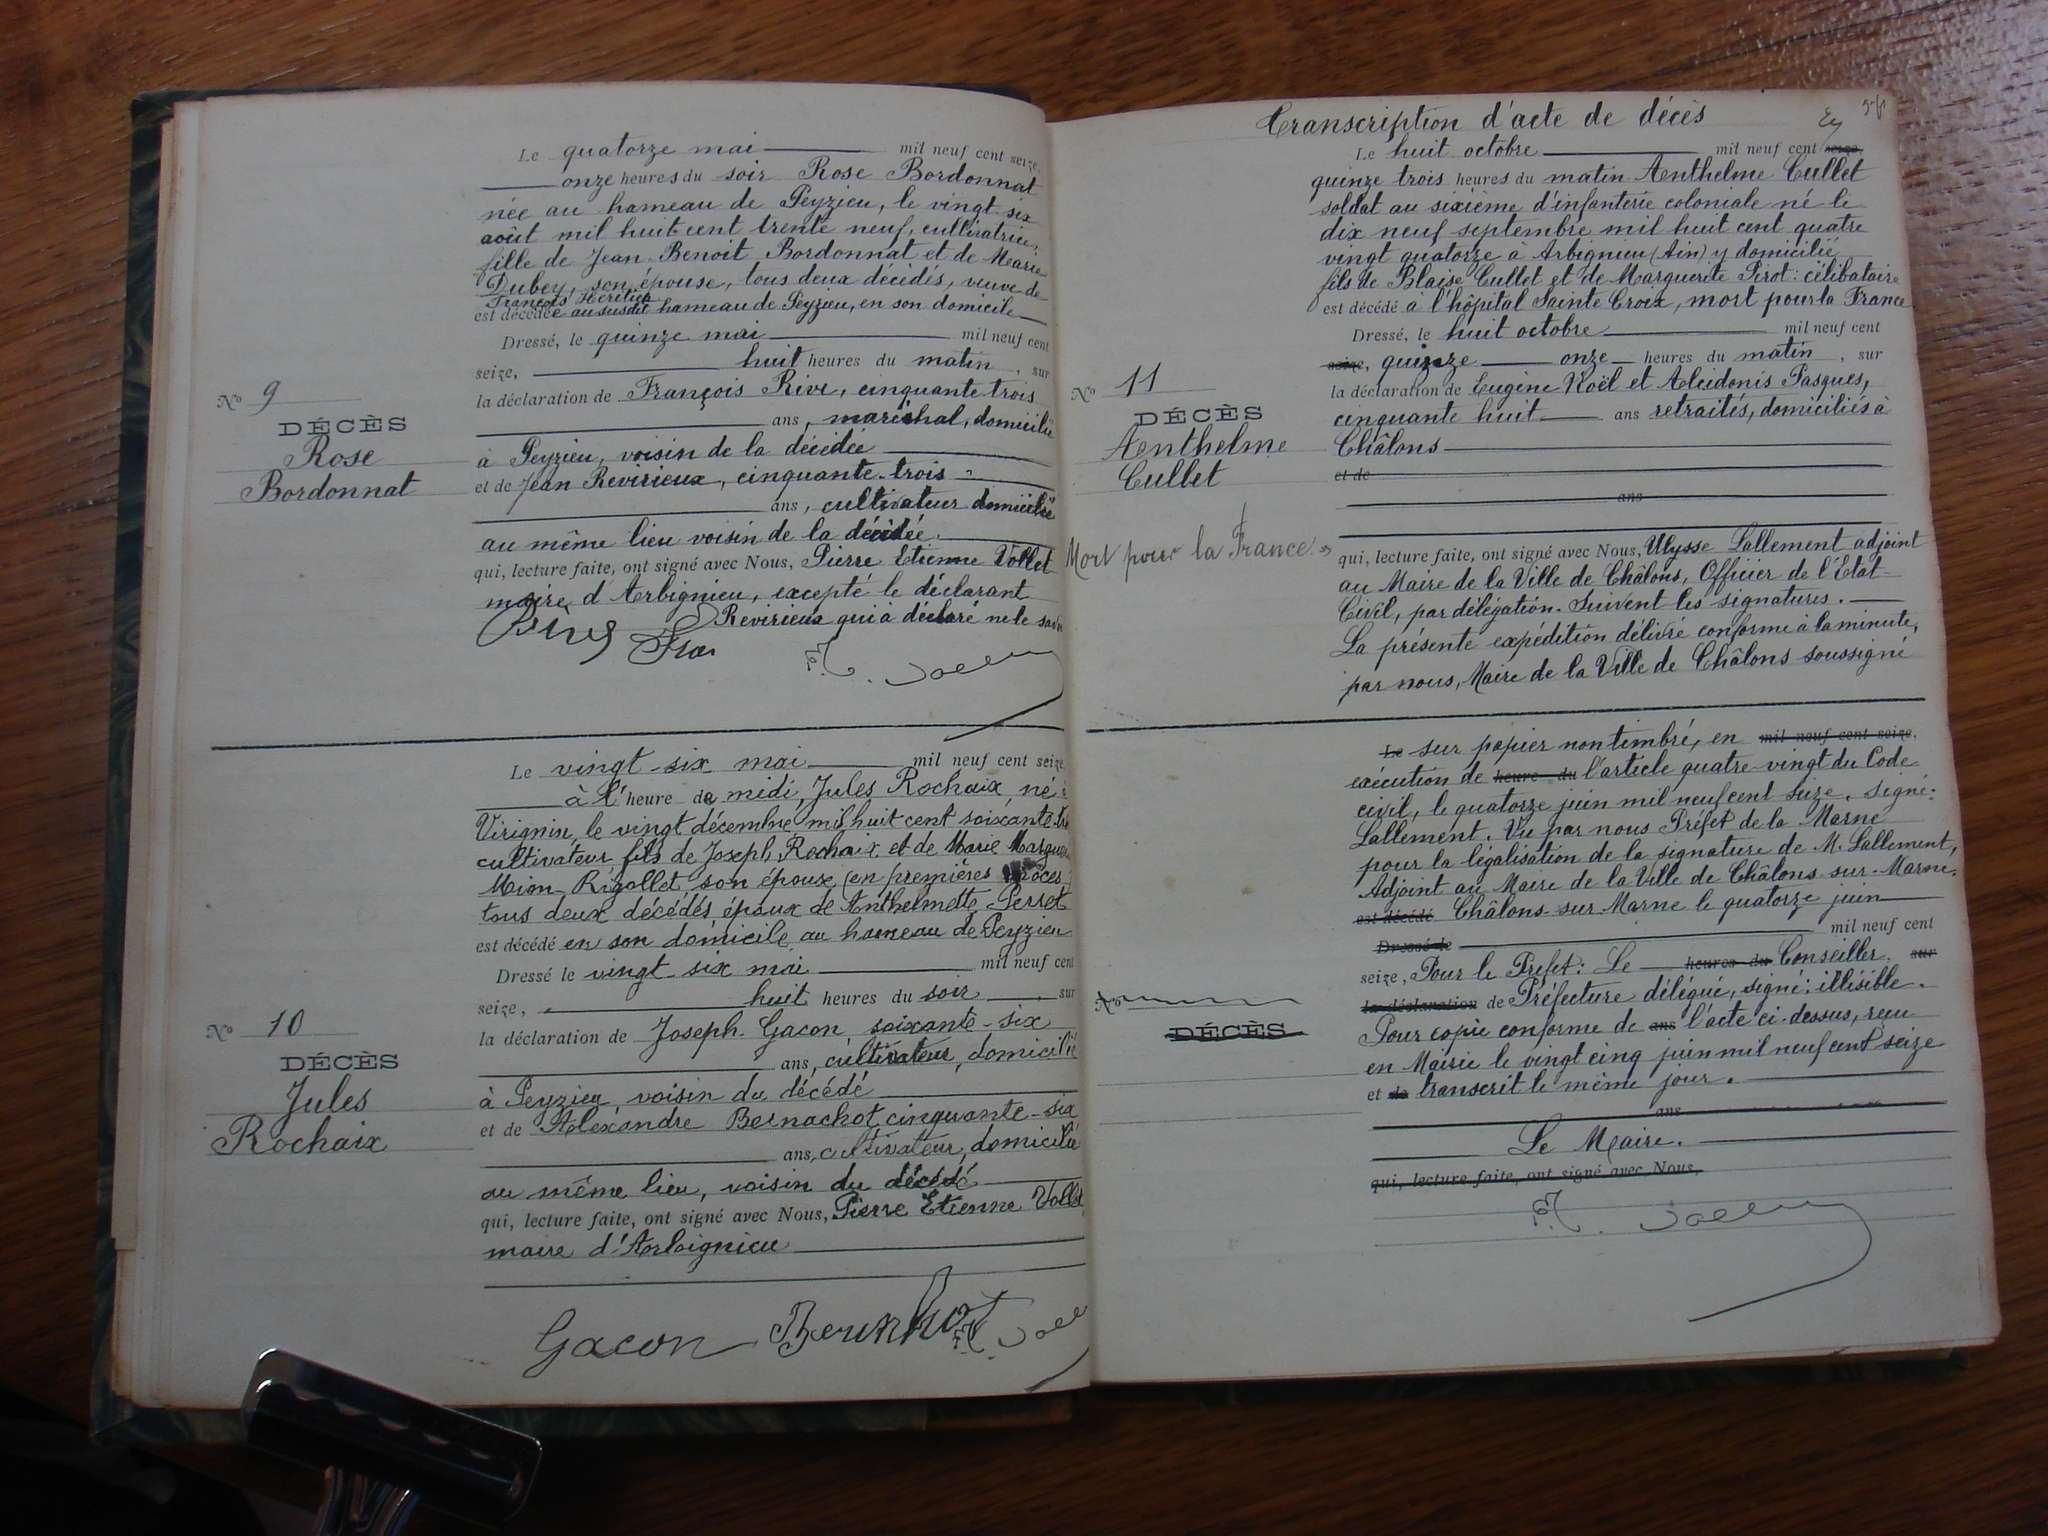 Le quatorze mai mil neuf cent seize,
onze heures du soir Rose Bordonnat
née au hameau de Peyzieu, le vingt-six
août mil huit cent trente neuf, cultivatrice,
fille de Jean-Benoit Bordonnat et de Marie
Dubey, son épouse, tous deux décédés, veuve de
François
est décédée au susdit hameau de Peyzieu, en son domicile
Dressé, le quinze mai mil neuf cent
seize, huit heures du matin, sur
la déclaration de François Rive, cinquante trois
ans, maréchal, domicilié
à Peyzieu, voisin de la décédée
et de Jean Revirieux, cinquante-trois
ans, cultivateur domicilié
au même lieu voisin de la décédée.
qui, lecture faite, ont signé avec Nous, Pierre Etienne Vollet
maire d'Arbignieu, excepté le déclarant
Revirieux qui a déclaré ne le
No 9
DÉCÈS
Rose
Bordonnat
Le vingt-six mai mil neuf cent seize,
à l'heure de midi, Jules Rochaix, né
Virignin, le vingt décembre mil huit cent soixante
cultivateur, fils de Joseph Rochaix et de Marie
Mion-Rigollet son épouse (en premières nôces
tous deux décédés époux de Anthelmette Perret
est décédé en son domicile au hameau de Peyzieu
Dressé le vingt-six mai mil neuf cent
seize, huit heures du soir, sur
la déclaration de Joseph Gacon, soixante-six
ans, cultivateur, domicilié
à Peyzieu, voisin du décédé
et de Alexandre Bernachot, cinquante-six
ans, cultivateur, domicilié
au même lieu, voisin du décédé
qui, lecture faite, ont signé avec Nous, Pierre Etienne Vollet,
maire d'Arbignieu
No 10
DÉCÈS
Jules
Rochaix
Gacon
Transcription d'acte de décès
Le huit octobre mil neuf cent seize,
quinze trois heures du matin Anthelme Cullet
soldat au sixième d'infanterie coloniale né le
dix neuf septembre mil huit cent quatre
vingt quatorze à Arbignieu (Ain) y domicilié
fils de Blaise Cullet et de Marguerite Pirot: célibataire
est décédé à l'hôpital Sainte Croix, mort pour la France
Dressé, le huit octobre mil neuf cent
seize, quinze onze heures du matin, sur
la déclaration de Eugène Noël et Alcidonis Pasques,
cinquante huit ans retraités, domiciliés à
Châlons
et de
ans
qui, lecture faite, ont signé avec Nous, Ulysse Lallement adjoint
au Maire de la Ville de Châlons, Officier de l'Etat-
Civil, par délégation. Suivent les signatures.
La présente expédition délivré conforme à la minute,
par nous, Maire de la Ville de Châlons soussigné
No 11
DÉCÈS
Anthelme
Cullet
Mort pour la France
Le sur papier non timbré, en mil neuf cent seize,
exécution de heure du l'article quatre-vingt du Code
civil, le quatorze juin mil neuf cent seize. Signé:
Lallement. Vu par nous Préfet de la Marne
pour la légalisation de la signature de M. Lallement,
Adjoint au Maire de la Ville de Châlons-sur-Marne.
est décédé Châlons-sur-Marne le quatorze juin
Dressé le mil neuf cent
seize, Pour le Préfet: Le heures du Conseiller, sur
la déclaration de Préfecture délégué, signé: illisible.
Pour copie conforme de ans l'acte ci-dessus, reçu
en Mairie le vingt cinq juin mil neuf cent seize
et de transcrit le même jour.
ans
Le Maire.
qui, lecture faite, ont signé avec Nous,
No
DÉCÈS